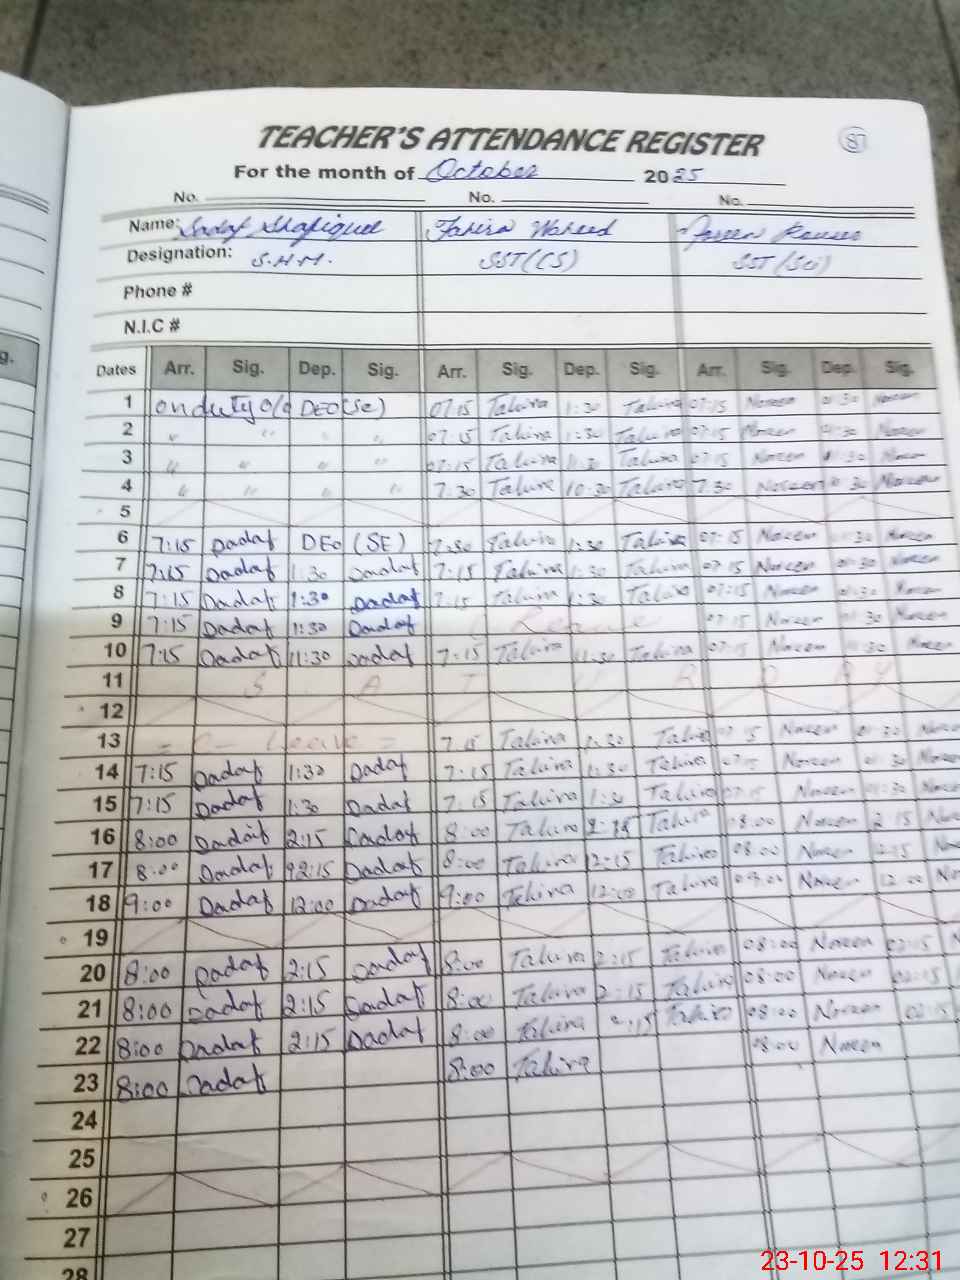 TEACHER'S ATTENDANCE REGISTER 87
For the month of October 2025
No. No. No.
Name: Sadaf Shafique Tahira Waheed
Designation: S.H.M. SST(CS) SST(Sci)
Phone #
N.I.C #
Dates Arr. Sig. Dep. Sig. Arr. Sig. Dep. Sig. Arr. Sig. Dep. Sig.
1 On duty o/o DEO(SE) 07:15 Tahira 1:30 Tahira 07:15 Noreen 01:30 Noreen
2 " " " " 07:15 Tahira 1:30 Tahira 07:15 Noreen 01:30 Noreen
3 " " " " 07:15 Tahira 11:30 Tahira 07:15 Noreen Noreen
4 " " " " 7:30 Tahira 10:30 Tahira 7:30 Noreen 10:30 Noreen
5
6 7:15 Sadaf DEO (SE) 7:30 Tahira 1:30 Tahira 07:15 Noreen 01:30 Noreen
7 7:15 Sadaf 1:30 Sadaf 7:15 Tahira 1:30 Tahira 07:15 Noreen 01:30 Noreen
8 7:15 Sadaf 1:30 Sadaf 7:15 Tahira 1:30 Tahira 07:15 Noreen 01:30 Noreen
9 7:15 Sadaf 1:30 Sadaf 07:15 Noreen 01:30 Noreen
10 7:15 Sadaf 11:30 Sadaf 7:15 Tahira 11:30 Tahira 07:15 Noreen 11:30 Noreen
11 S A T U R D A Y
12
13 = C- Leave = 7:15 Tahira 1:30 Tahira 07:15 Noreen 01:30 Noreen
14 7:15 Sadaf 1:30 Sadaf 7:15 Tahira 1:30 Tahira 07:15 Noreen 01:30 Noreen
15 7:15 Sadaf 1:30 Sadaf 7:15 Tahira 1:30 Tahira 07:15 Noreen 01:30 Noreen
16 8:00 Sadaf 2:15 Sadaf 8:00 Tahira 2:15 Tahira 08:00 Noreen 2:15
17 8:00 Sadaf 2:15 Sadaf 8:00 Tahira 12:15 Tahira 08:00 Noreen 12:15
18 9:00 Sadaf 12:00 Sadaf 9:00 Tahira 12:00 Tahira 09:00 Noreen 12:00
19
20 8:00 Sadaf 2:15 Sadaf 8:00 Tahira 2:15 Tahira 08:00 Noreen 02:15
21 8:00 Sadaf 2:15 Sadaf 8:00 Tahira 2:15 Tahira 08:00 Noreen 02:15
22 8:00 Sadaf 2:15 Sadaf 8:00 Tahira 2:15 Tahira 08:00 Noreen 02:15
23 8:00 Sadaf 8:00 Tahira 08:00 Noreen
24
25
26
27
28
23-10-25 12:31